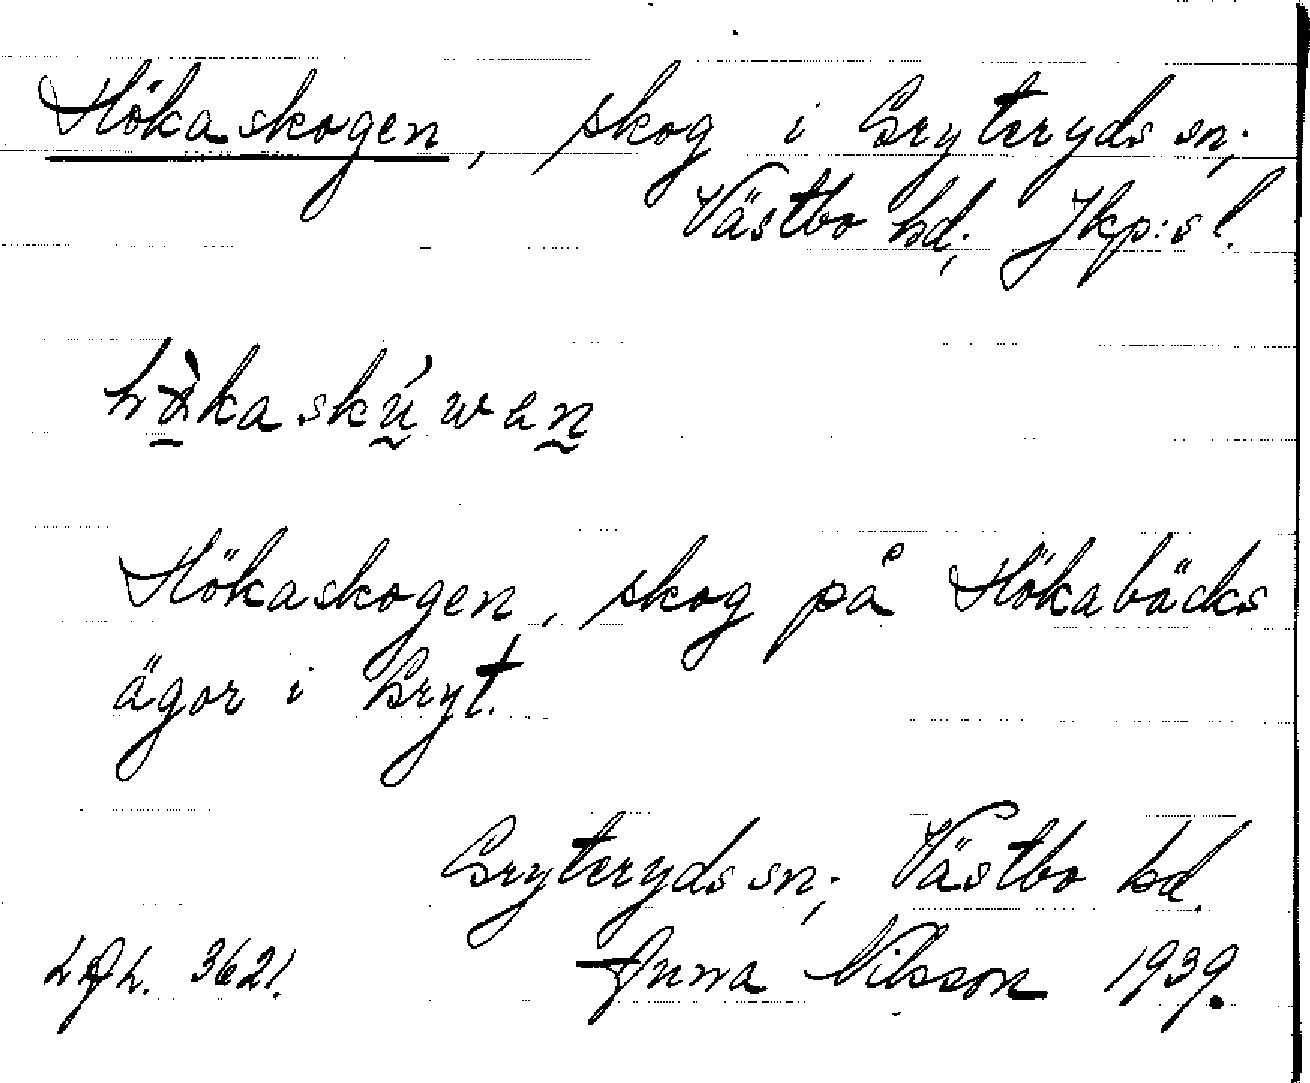 Hökaskogen, skog i Gryteryds sn;
Västbo hd; Jkp:s l.
Hökaskogen, skog på Hökabäcks
ägor i Gryt.
Gryteryds sn; Västbo hd.
3621. Anna Nilsson 1939.